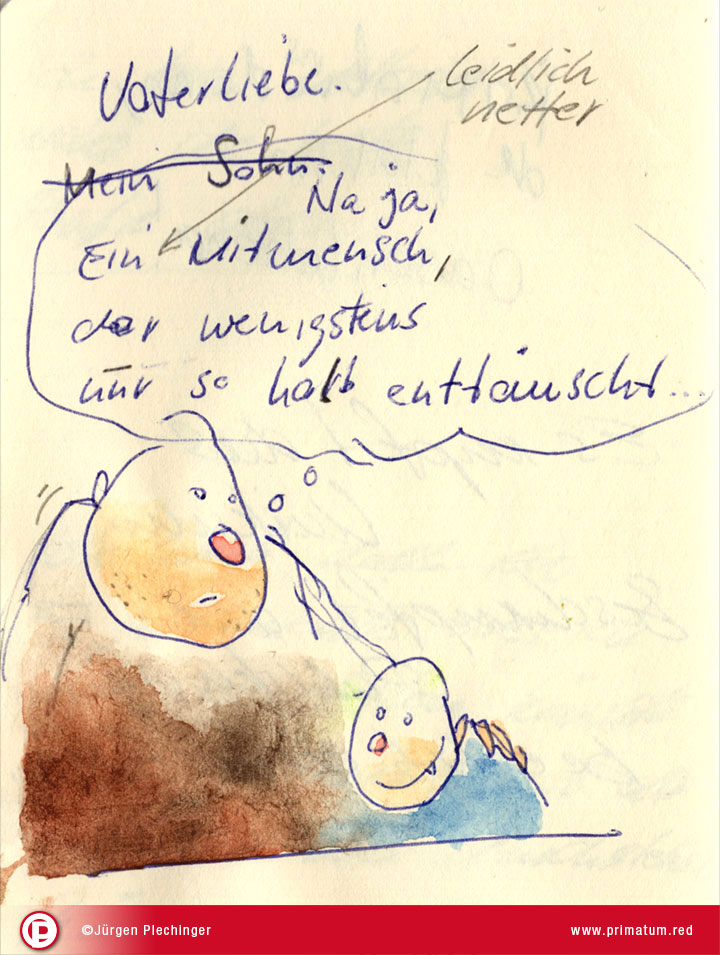 Vaterliebe.
leidlich
netter
Mein Sohn.
Na ja,
Ein Mitmensch,
der wenigstens
nur so halb enttäuscht...
P
©Jürgen Plechinger
www.primatum.red